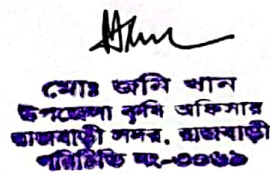 মোঃ জনি খান
উপজেলা কৃষি অফিসার
রাজবাড়ী সদর, রাজবাড়ী
পরিচিতি নং-৩০৬১